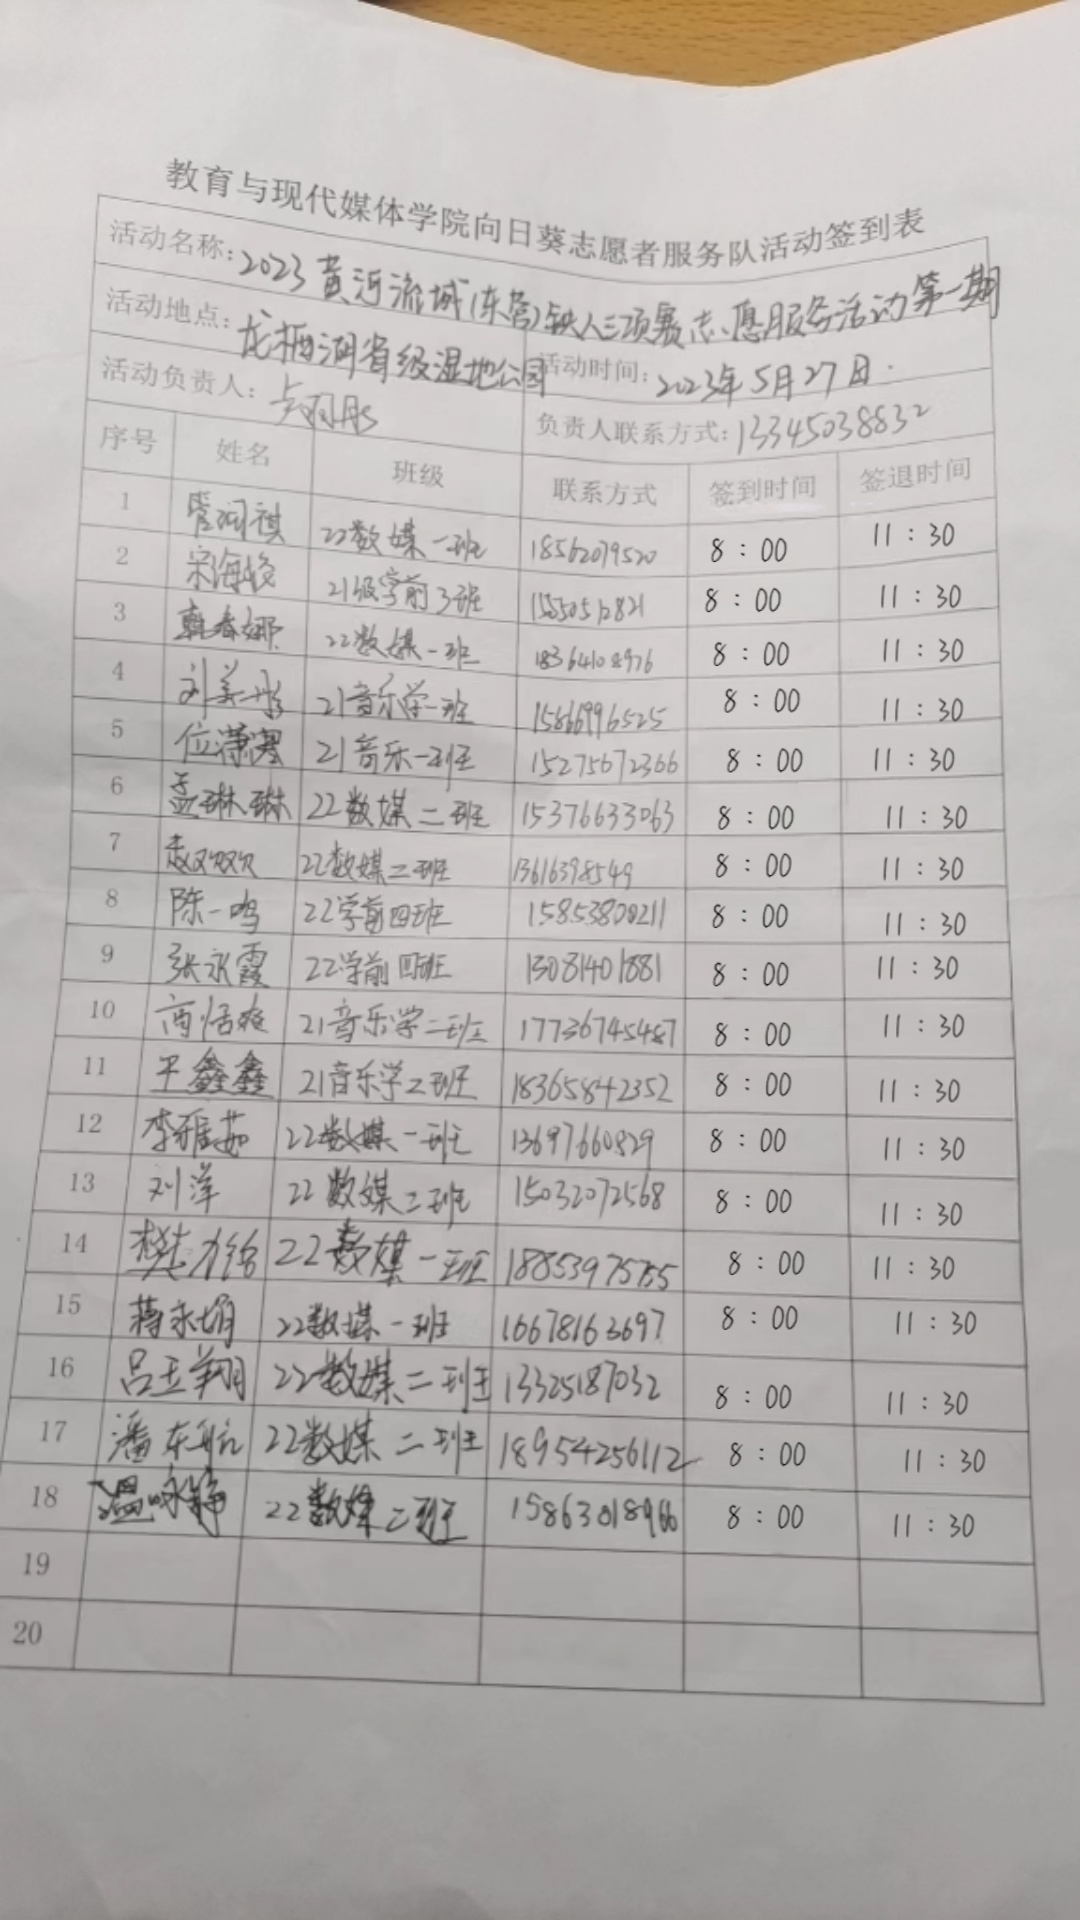 教育与现代媒体学院向日葵志愿者服务队活动签到表
活动名称：2023黄河流域（东营）铁人三项赛志愿服务活动第一期
活动地点：龙栖湖省级湿地公园 活动时间：2023年5月27日.
活动负责人： 负责人联系方式：13345038832
序号 姓名 班级 联系方式 签到时间 签退时间
1 管润祺 22数媒一班 18562079520 8：00 11：30
2 宋海悦 21级学前3班 8：00 11：30
3 韩春娜 22数媒一班 18364108976 8：00 11：30
4 刘美彤 21音乐学一班 15866996525 8：00 11：30
5 位潇潇 21音乐一班 15275672366 8：00 11：30
6 孟琳琳 22数媒二班 15376633063 8：00 11：30
7 赵欢欢 22数媒二班 13616398549 8：00 11：30
8 陈一鸣 22学前四班 15853800211 8：00 11：30
9 张永霞 22学前四班 13081401881 8：00 11：30
10 21音乐学二班 17736745487 8：00 11：30
11 王鑫鑫 21音乐学二班 18365842352 8：00 11：30
12 李雅茹 22数媒一班 13697660829 8：00 11：30
13 刘洋 22数媒二班 15032072568 8：00 11：30
14 樊力铭 22数媒一班 18853975755 8：00 11：30
15 蒋永娟 22数媒一班 16678163697 8：00 11：30
16 吕玉翔 22数媒二班 13325187032 8：00 11：30
17 潘东航 22数媒二班 18954256112 8：00 11：30
18 温咏铮 22数媒二班 15863018966 8：00 11：30
19
20